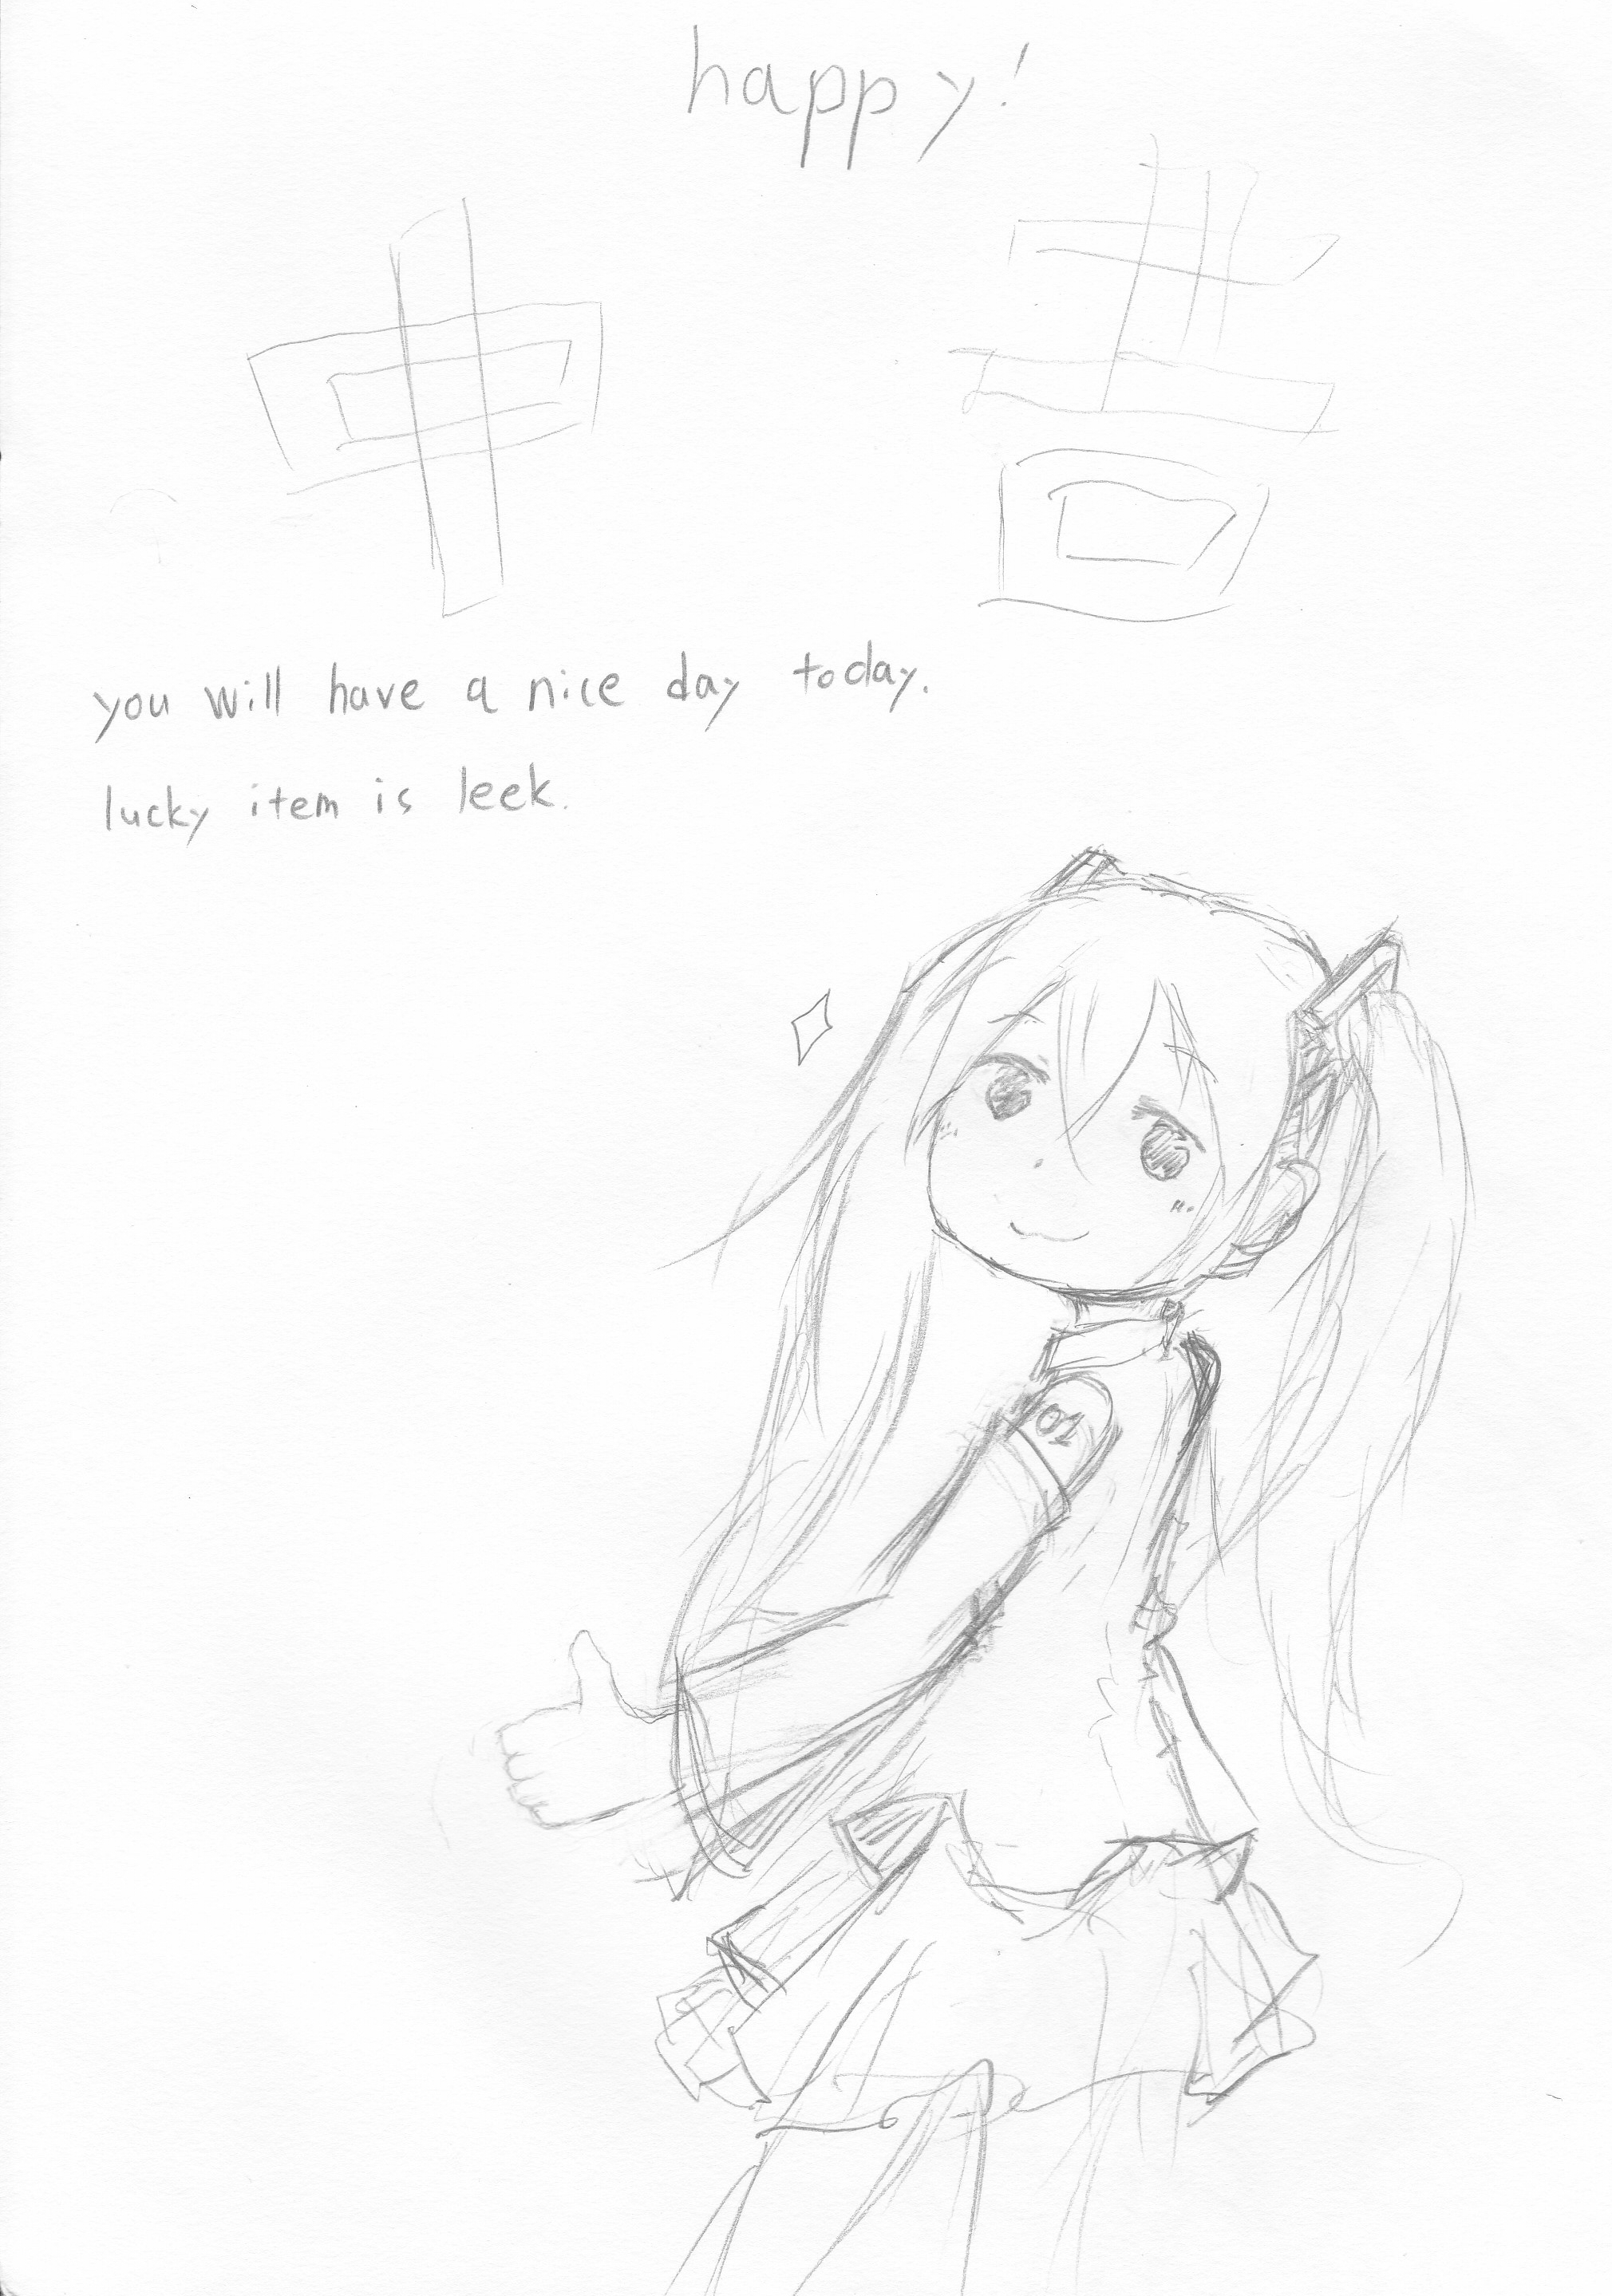 happy!
中吉
you will have a nice day today.
lucky item is leek.
01